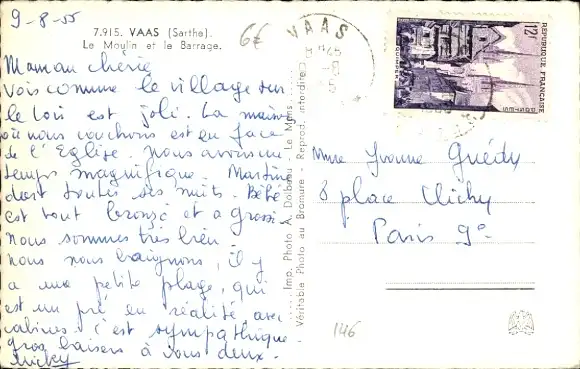 9-8-55
7.915. VAAS (Sarthe).
Le Moulin et le Barrage.
6E
Maman chérie
Vois comme le village sur
le Loir est joli. La maison
où nous couchons est en face
de l'Eglise. Nous avons un
temps magnifique. Martine
dort toutes ses nuits. Bébé
est tout bronzé et a grossi.
Nous sommes très bien.
Nous nous baignons, il y
a une petite plage, qui
est un pré en réalité avec
cabines. c'est sympathique.
gros baisers à vous deux.
Micky
Imp. Photo A. Dolbeau - Le Mans
Véritable Photo au Bromure - Reprod. interdite
VAAS
12F
REPUBLIQUE FRANÇAISE
POSTES
QUIMPER
Mme Yvonne Guédy
8 place Clichy
Paris 9e
146